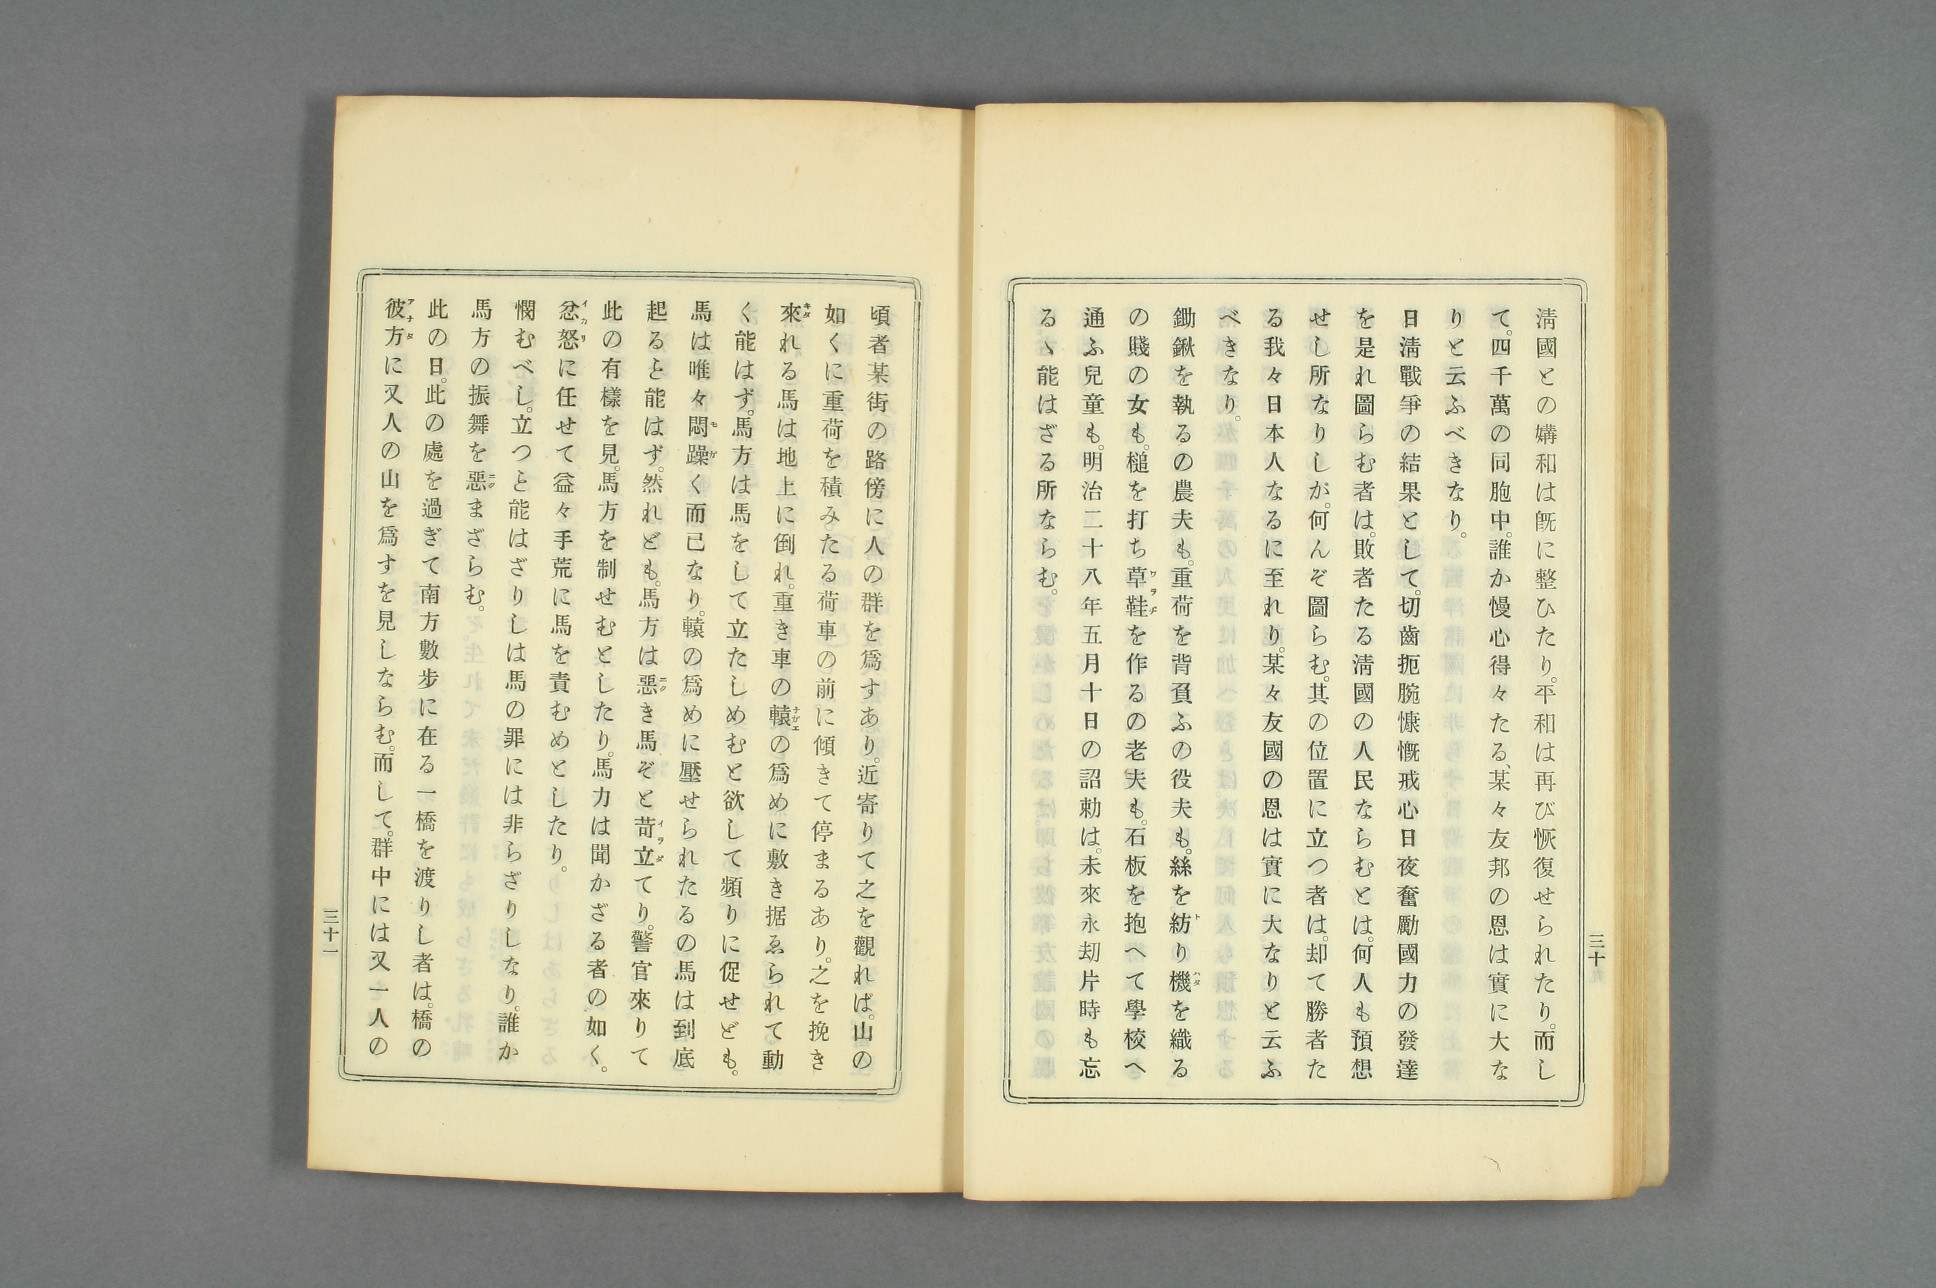 淸國との媾和は旣に整ひたり。平和は再び恢復せられたり。而し
て。四千萬の同胞中。誰か慢心得々たる、某々友邦の恩は實に大な
りと云ふべきなり。
日淸戰爭の結果として。切齒扼腕慷慨戒心日夜奮勵國力の發達
を是れ圖らむ者は。敗者たる淸國の人民ならむとは。何人も預想
せし所なりしが。何んぞ圖らむ。其の位置に立つ者は。却て勝者た
る我々日本人なるに至れり。某々友國の恩は實に大なりと云ふ
べきなり。
鋤鍬を執るの農夫も。重荷を背負ふの役夫も。絲を紡り機を織る
の賤の女も。槌を打ち草鞋を作るの老夫も。石板を抱へて學校へ
通ふ兒童も。明治二十八年五月十日の詔勅は。未來永刧片時も忘
るゝ能はざる所ならむ。
三十
頃者某街の路傍に人の群を爲すあり。近寄りて之を觀れば。山の
如くに重荷を積みたる荷車の前に傾きて停まるあり。之を挽き
來れる馬は地上に倒れ。重き車の轅の爲めに敷き据ゑられて動
く能はず。馬方は馬をして立たしめむと欲して頻りに促せども。
馬は唯々悶躁く而已なり。轅の爲めに壓せられたるの馬は到底
起ると能はず。然れども。馬方は惡き馬ぞと苛立てり。警官來りて
此の有樣を見。馬方を制せむとしたり。馬力は聞かざる者の如く。
忿怒に任せて益々手荒に馬を責むめとしたり。
憫むべし。立つと能はざりしは馬の罪には非らざりしなり。誰か
馬方の振舞を惡まざらむ。
此の日。此の處を過ぎて南方數步に在る一橋を渡りし者は。橋の
彼方に又人の山を爲すを見しならむ。而して。群中には又一人の
三十一